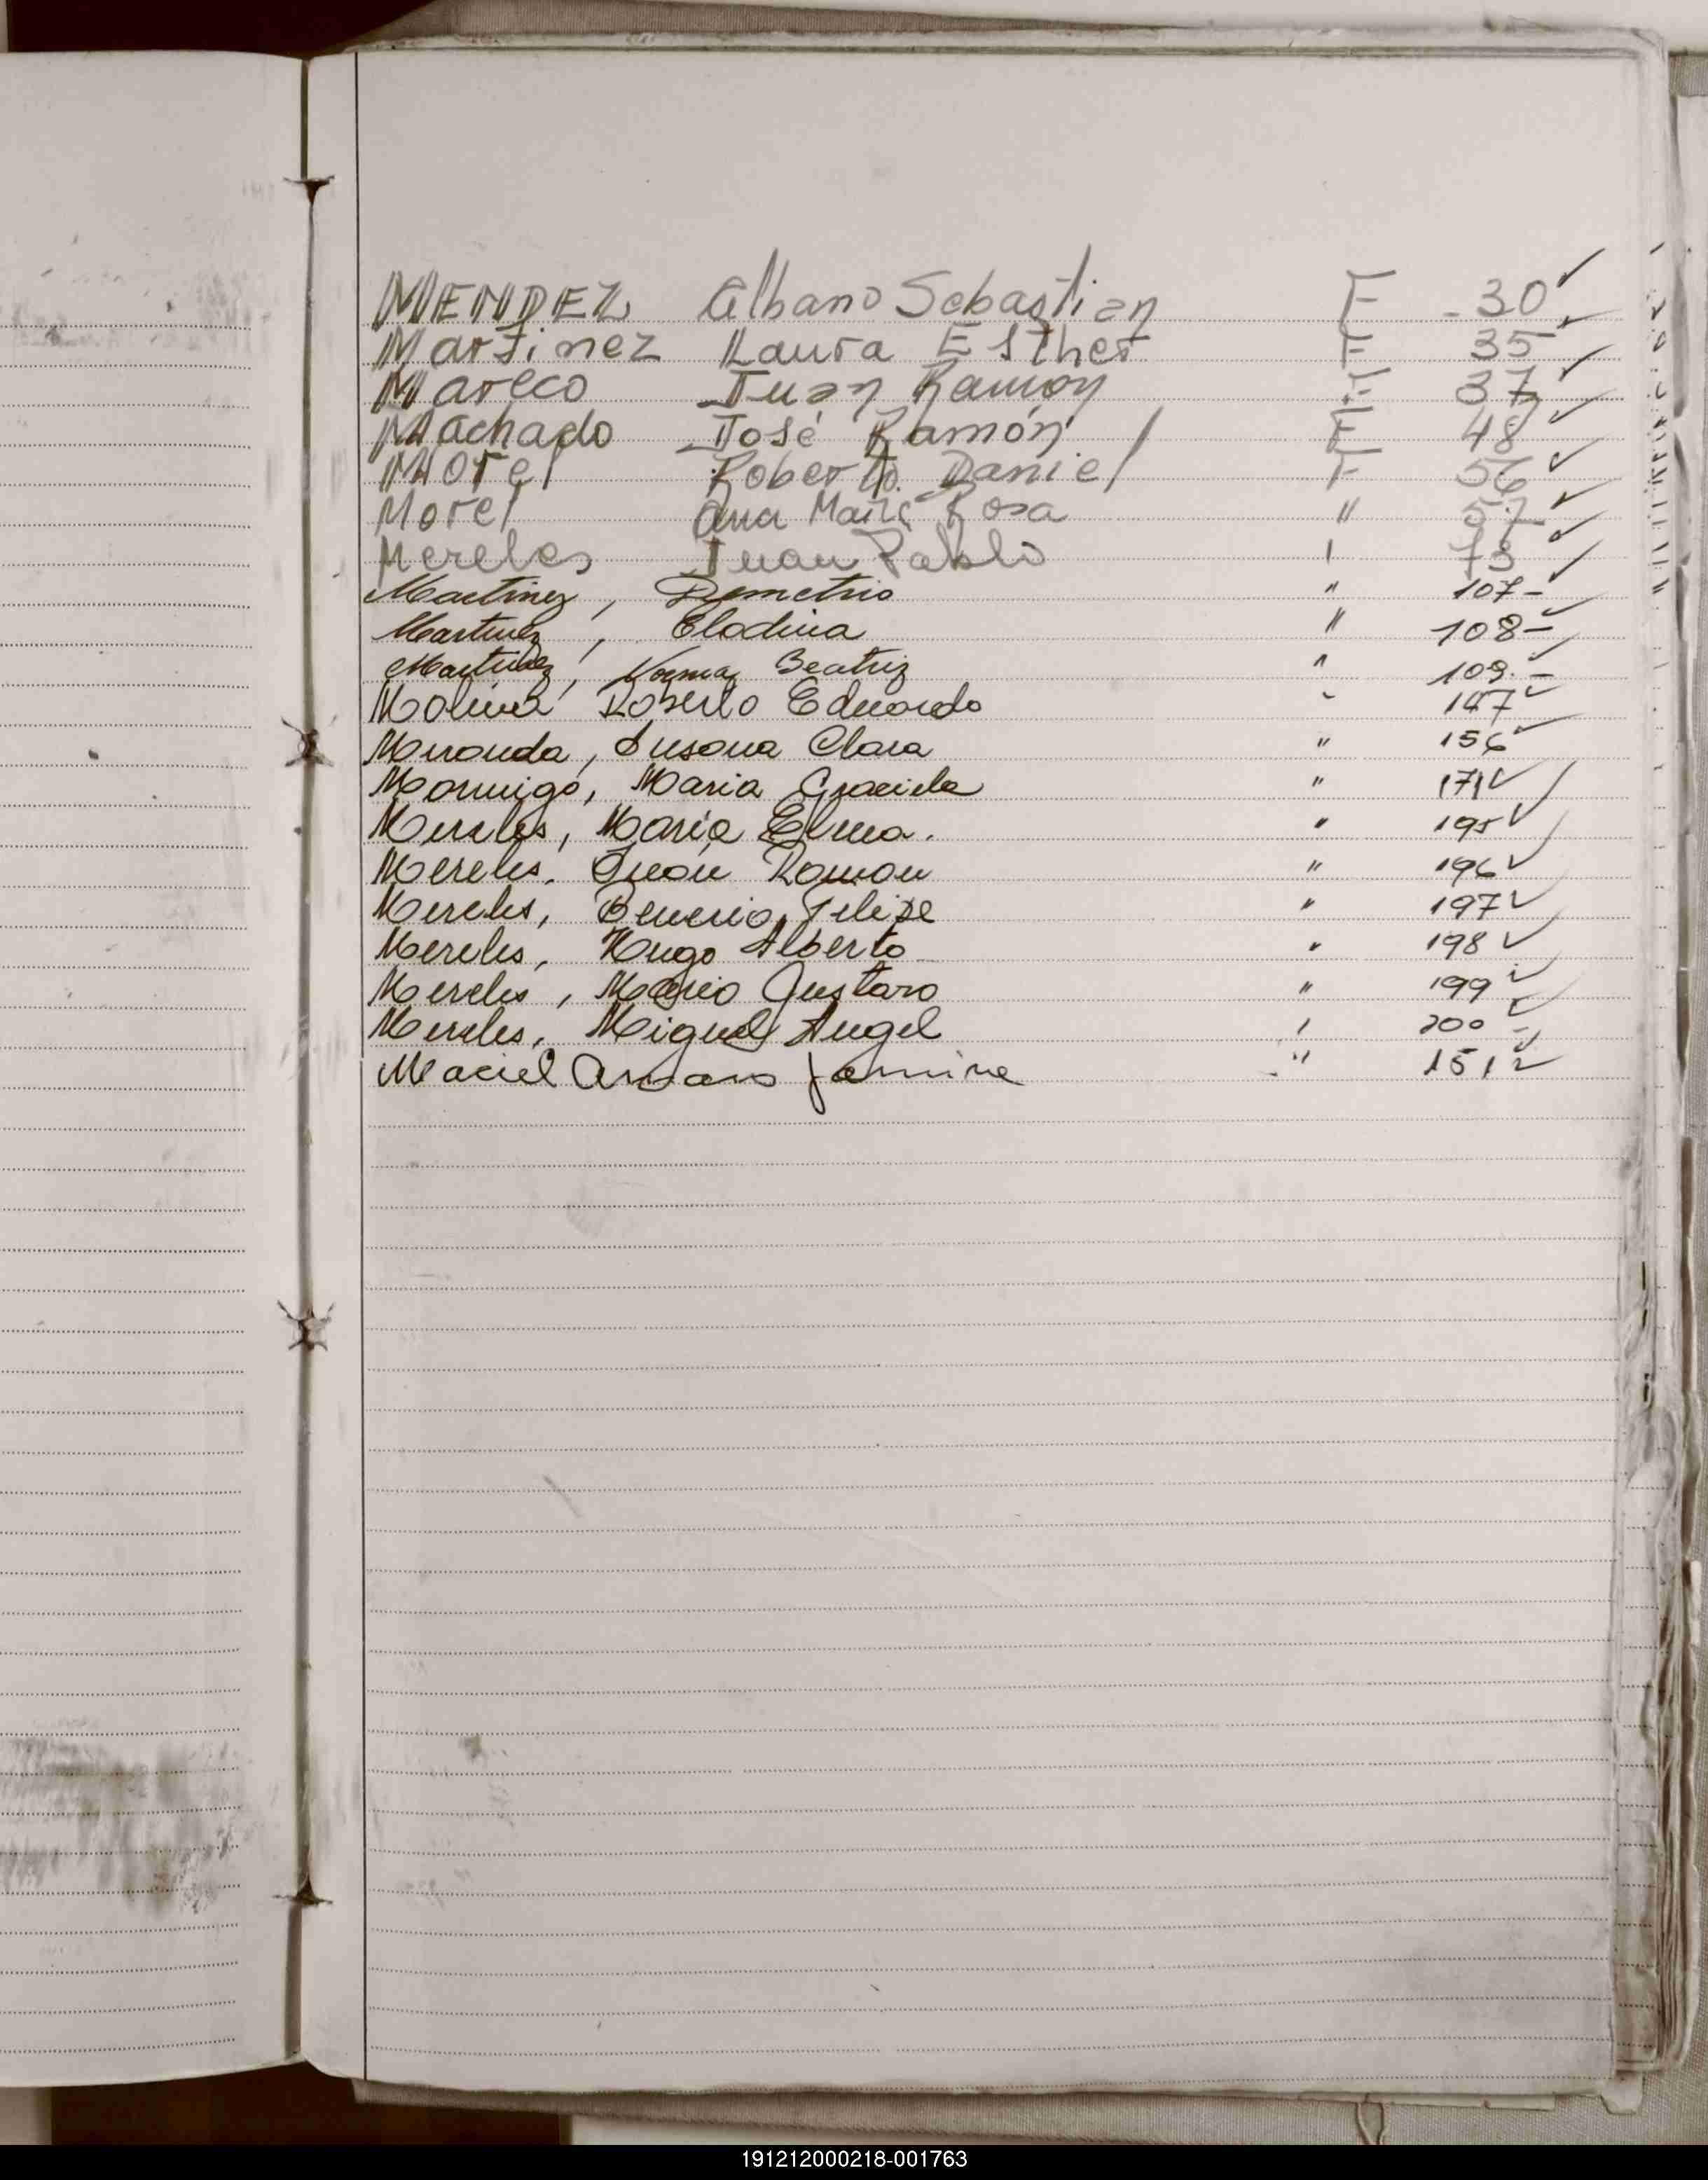 MENDEZ Albano Sebastian F - 30 ✓
Martinez Laura Esther F 35 ✓
Mareco Juan Ramon F 37 ✓
Machado José Ramón / F 48 ✓
Morel Roberto Daniel F 56 ✓
Morel Ana María Rosa " 57 ✓
Mereles Juan Pablo " 73 ✓
Martinez, Demetrio " 107 - ✓
Martinez, Elodina " 108 - ✓
Martinez, Norma Beatriz " 109 - ✓
Molina Roberto Eduardo " 147 ✓
Miranda, Susana Clara " 156 ✓
Mormigo, Maria Graciela " 171 ✓
Mereles, Maria Elena. " 195 ✓
Mereles, Juan Ramon " 196 ✓
Mereles, Felipe " 197 ✓
Mereles, Hugo Alberto " 198 ✓
Mereles, Mario Gustavo " 199 ✓
Mereles, Miguel Angel " 200 - ✓
Maciel " 151 ✓
191212000218-001763